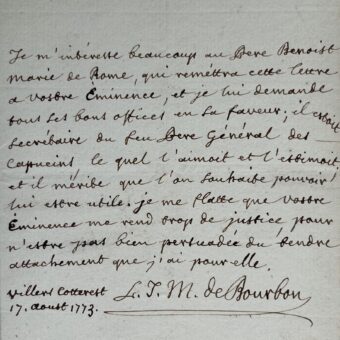 Je m'intéresse beaucoup au Pere Benoist
Marie de Rome, qui remettra cette lettre
a Vostre Éminence, et je lui demande
tous ses bons offices en sa faveur; il estoit
secrétaire du feu Pere Général des
Capucins le quel l'aimoit et l'estimoit
et il mérite que l'on souhaite pouvoir
lui estre utile. je me flatte que Vostre
Éminence me rend trop de justice pour
n'estre pas bien persuadée du tendre
attachement que j'ai pour elle.
Villers Cotterest L. J. M. de Bourbon
17. aoust 1773.